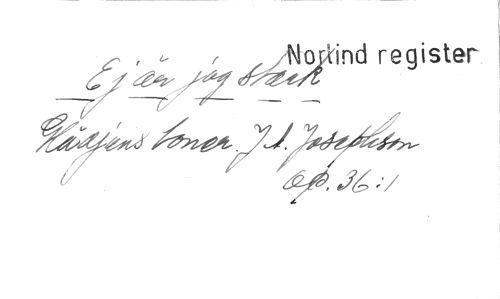 Norlind register
Ej är jag stark
Hårdjens toner. J. A. Josephson
op. 36:1